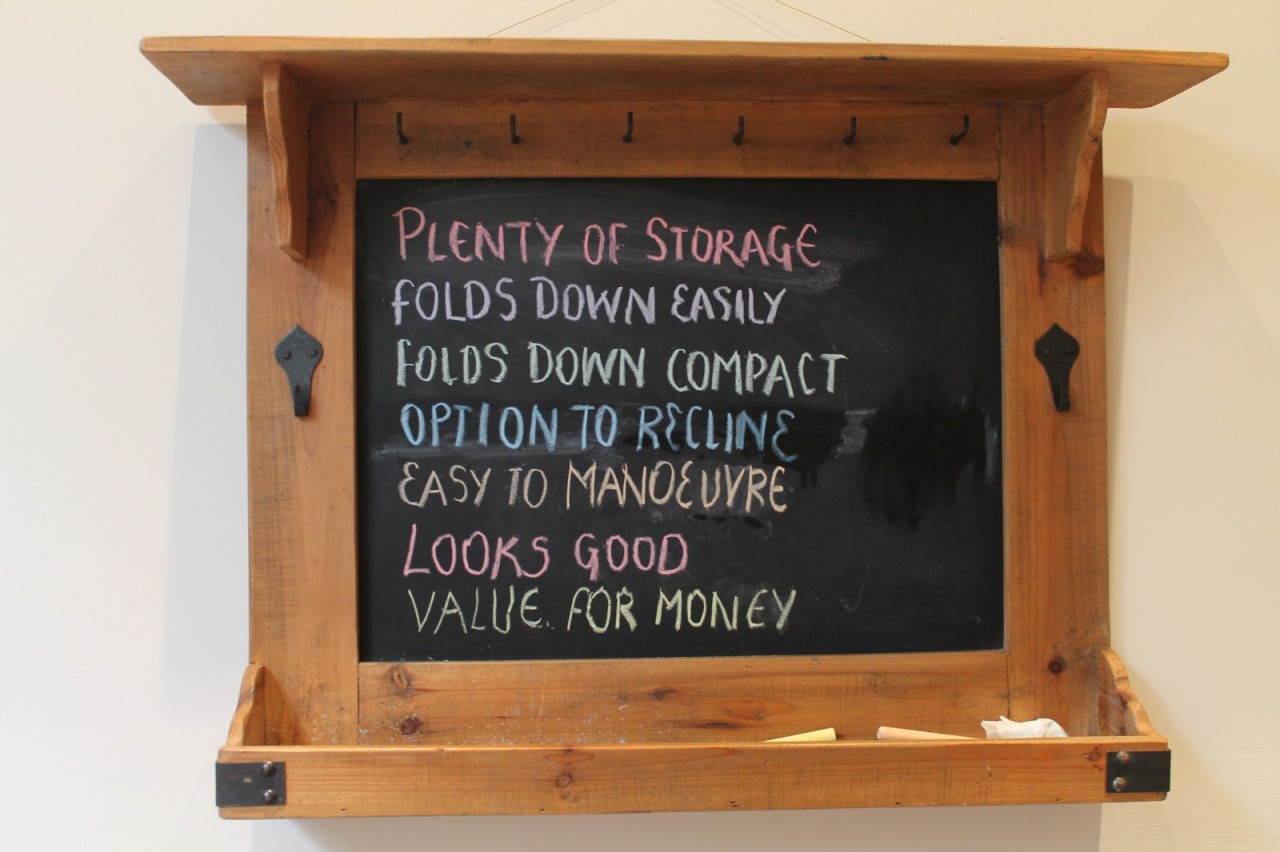 PLENTY OF STORAGE
FOLDS DOWN EASILY
FOLDS DOWN COMPACT
OPTION TO RECLINE
EASY TO MANOEUVRE
LOOKS GOOD
VALUE FOR MONEY